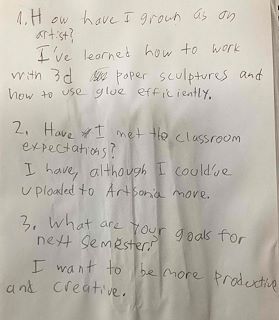 1. How have I grown as an
artist?
I've learned how to work
with 3d paper sculptures and
how to use glue efficiently.
2. Have I met the classroom
expectations?
I have, although I could've
uploaded to Artsonia move.
3. What are your goals for
next semester?
I want to be more productive
and creative.